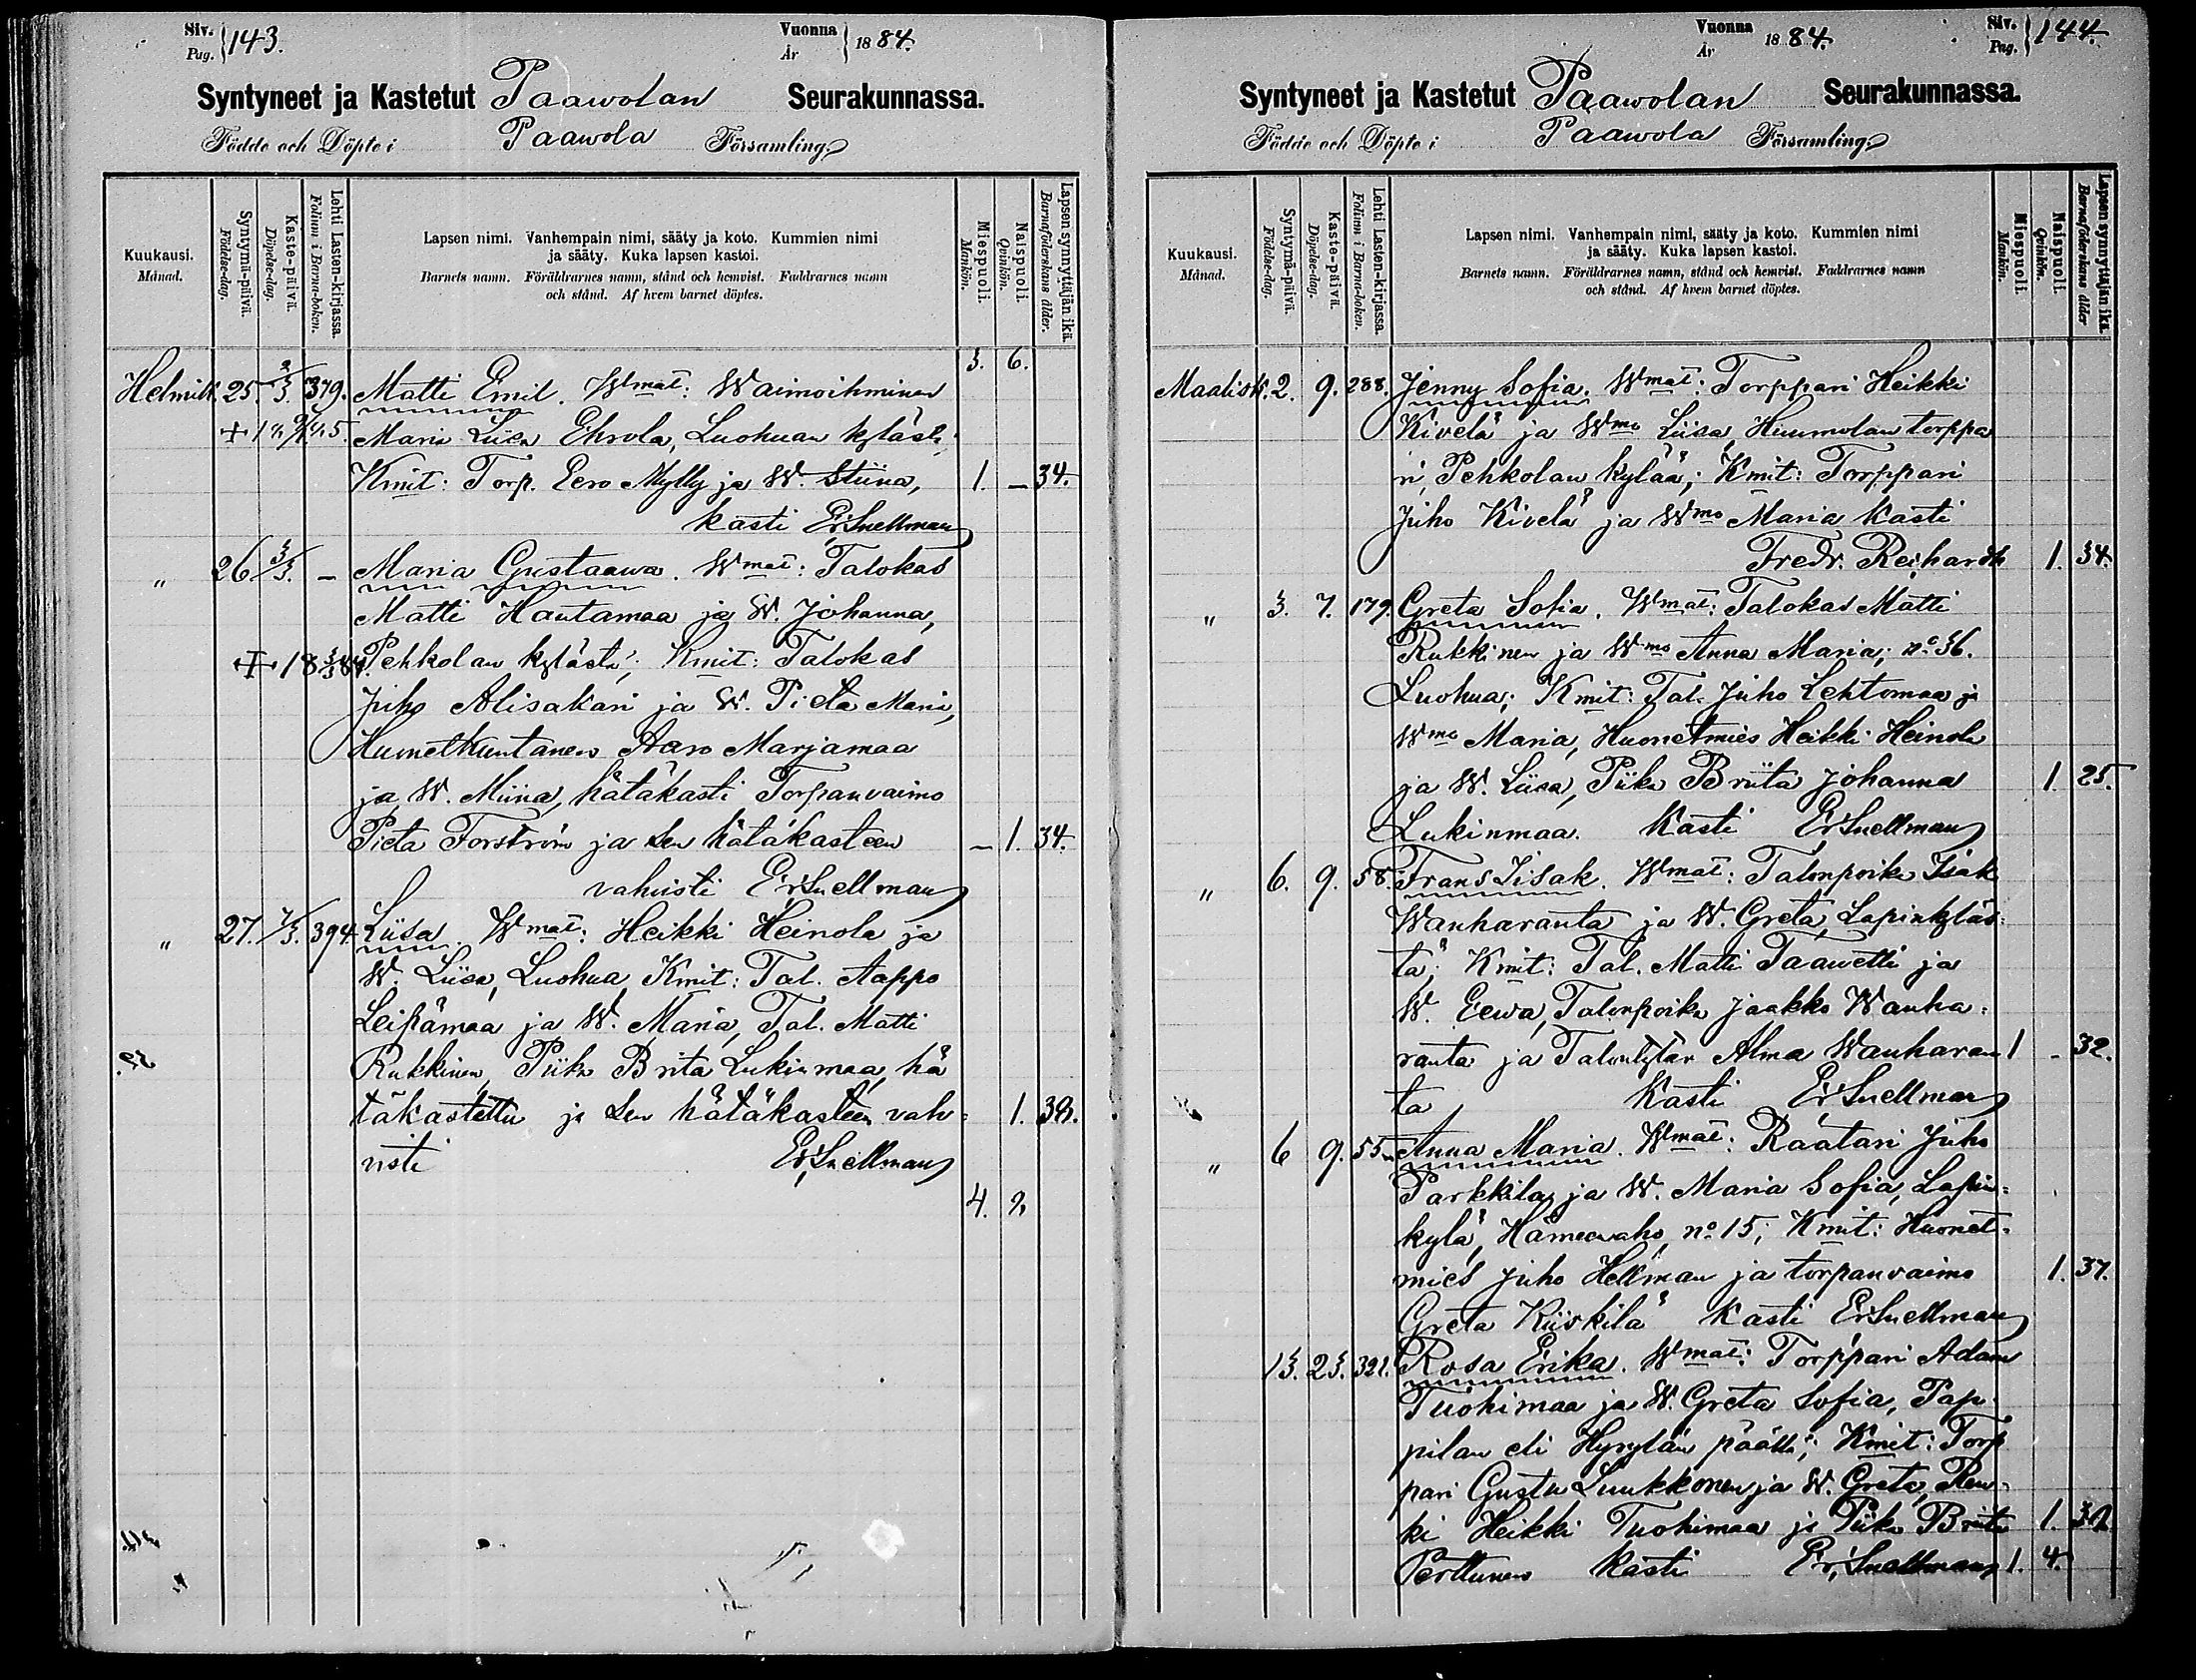 Siv. Pag. } 143.
Vuonna År } 1884.
Syntyneet ja Kastetut Paawolan Seurakunnassa.
Födde och Döpte i Paawola Församling
Kuukausi. Månad.
Syntymä-päivä. Födelse-dag.
Kaste-päivä. Döpelse-dag.
Lehti Lasten-kirjassa. Folium i Barna-boken.
Lapsen nimi. Vanhempain nimi, sääty ja koto. Kummien nimi
ja sääty. Kuka lapsen kastoi.
Barnets namn. Föräldrarnes namn, stånd och hemvist. Faddrarnes namn
och stånd. Af hvem barnet döptes.
Miespuoli. Mankön.
Naispuoli. Qvinkön.
Lapsen synnyttäjän ikä. Barnaföderskans ålder.
3. 6.
Helmik. 25. 2/3. 379. Matti Emil. Wmat: Waimoihminen
Maria Liisa Ehrola, Luohuan kylästä;
Kmit: Torp. Eero Mylly ja W. Stiina, 1. — 34.
kasti Er. Snellman
" 26 3/3. — Maria Gustaawa. Wmat: Talokas
Matti Hautamaa ja W. Johanna,
Pehkolan kylästä; Kmit: Talokas
Juho Alisakari ja W. Pieta Maria,
Huonetkuntanen Aaro Marjamaa
ja W. Miina, hätäkasti Torpanvaimo
Pieta Forström ja sen hätäkasteen — 1. 34.
vahvisti Er Snellman
" 27. 7/3. 394. Liisa. Wmat: Heikki Heinola ja
W. Liisa, Luohua, Kmit: Tal. Aappo
Leipämaa ja W. Maria, Tal. Matti
Rukkinen, Piika Brita Lukinmaa, hä
täkastettu ja sen hätäkasteen vah= 1.
visti Er, Snellman
4. 2
Vuonna År 1884.
Siv. Pag. } 144.
Syntyneet ja Kastetut Paawolan Seurakunnassa.
Födde och Döpte i Paawola Församling
Kuukausi. Månad.
Syntymä-päivä. Födelse-dag.
Kaste-päivä. Döpelse-dag.
Lehti Lasten-kirjassa. Folium i Barna-boken.
Lapsen nimi. Vanhempain nimi, sääty ja koto. Kummien nimi
ja sääty. Kuka lapsen kastoi.
Barnets namn. Föräldrarnes namn, stånd och hemvist. Faddrarnes namn
och stånd. Af hvem barnet döptes.
Miespuoli. Mankön.
Naispuoli. Qvinkön.
Lapsen synnyttäjän ikä. Barnaföderskans ålder
Maalisk. 2. 9. 288. Jenny Sofia. Wmat: Torppari Heikki
Kivelä ja Wmo Liisa, Huumolan torppa
ri, Pehkolan kylää; Kmit: Torppari
Juho Kivelä ja Wmo Maria Kasti
Fredr. Reihardt 1. 34.
" 3. 7. 179. Greta Sofia. Wmat: Talokas Matti
Rukkinen ja Wmo Anna Maria; no 36.
Luohua; Kmit: Tal. Juho Lehtomaa ja
Wmo Maria, Huonetmies Heikki Heinola
ja W. Liisa, Piika Briita Johanna 1. 25.
Lukinmaa. Kasti Er Snellman
" 6. 9. 58. Frans Iisak. Wmat: Talonpoika Isak
Wanharanta ja W. Greta, Lapinkyläs=
tä; Kmit: Tal. Matti Taawetti ja
W. Eewa, Talonpoika Jaakko Wanha=
ranta ja Talontytär Alma Wanharan 1 - 32.
ta Kasti Er Snellman
" 6 9. 55. Anna Maria. Wmat: Räätäri Juho
Parkkila ja W. Maria Sofia, Lapin=
kylä, Hämeenaho, no 15; Kmit: Huonet=
mies Juho Hellman ja torpanvaimo 1. 37.
Greta Kiiskilä Kasti Er Snellman
13. 23. 321. Rosa Erika. Wmat: Torppari Adam
Tuohimaa ja W. Greta Sofia, Pap
pilan eli Hyrylän päältä; Kmit: Torp
pari Gusta Luukkonen ja W. Greta, Ren=
ki Heikki Tuohimaa ja Piika Briita 1.
Perttunen Kasti Er, Snellman 1. 4.